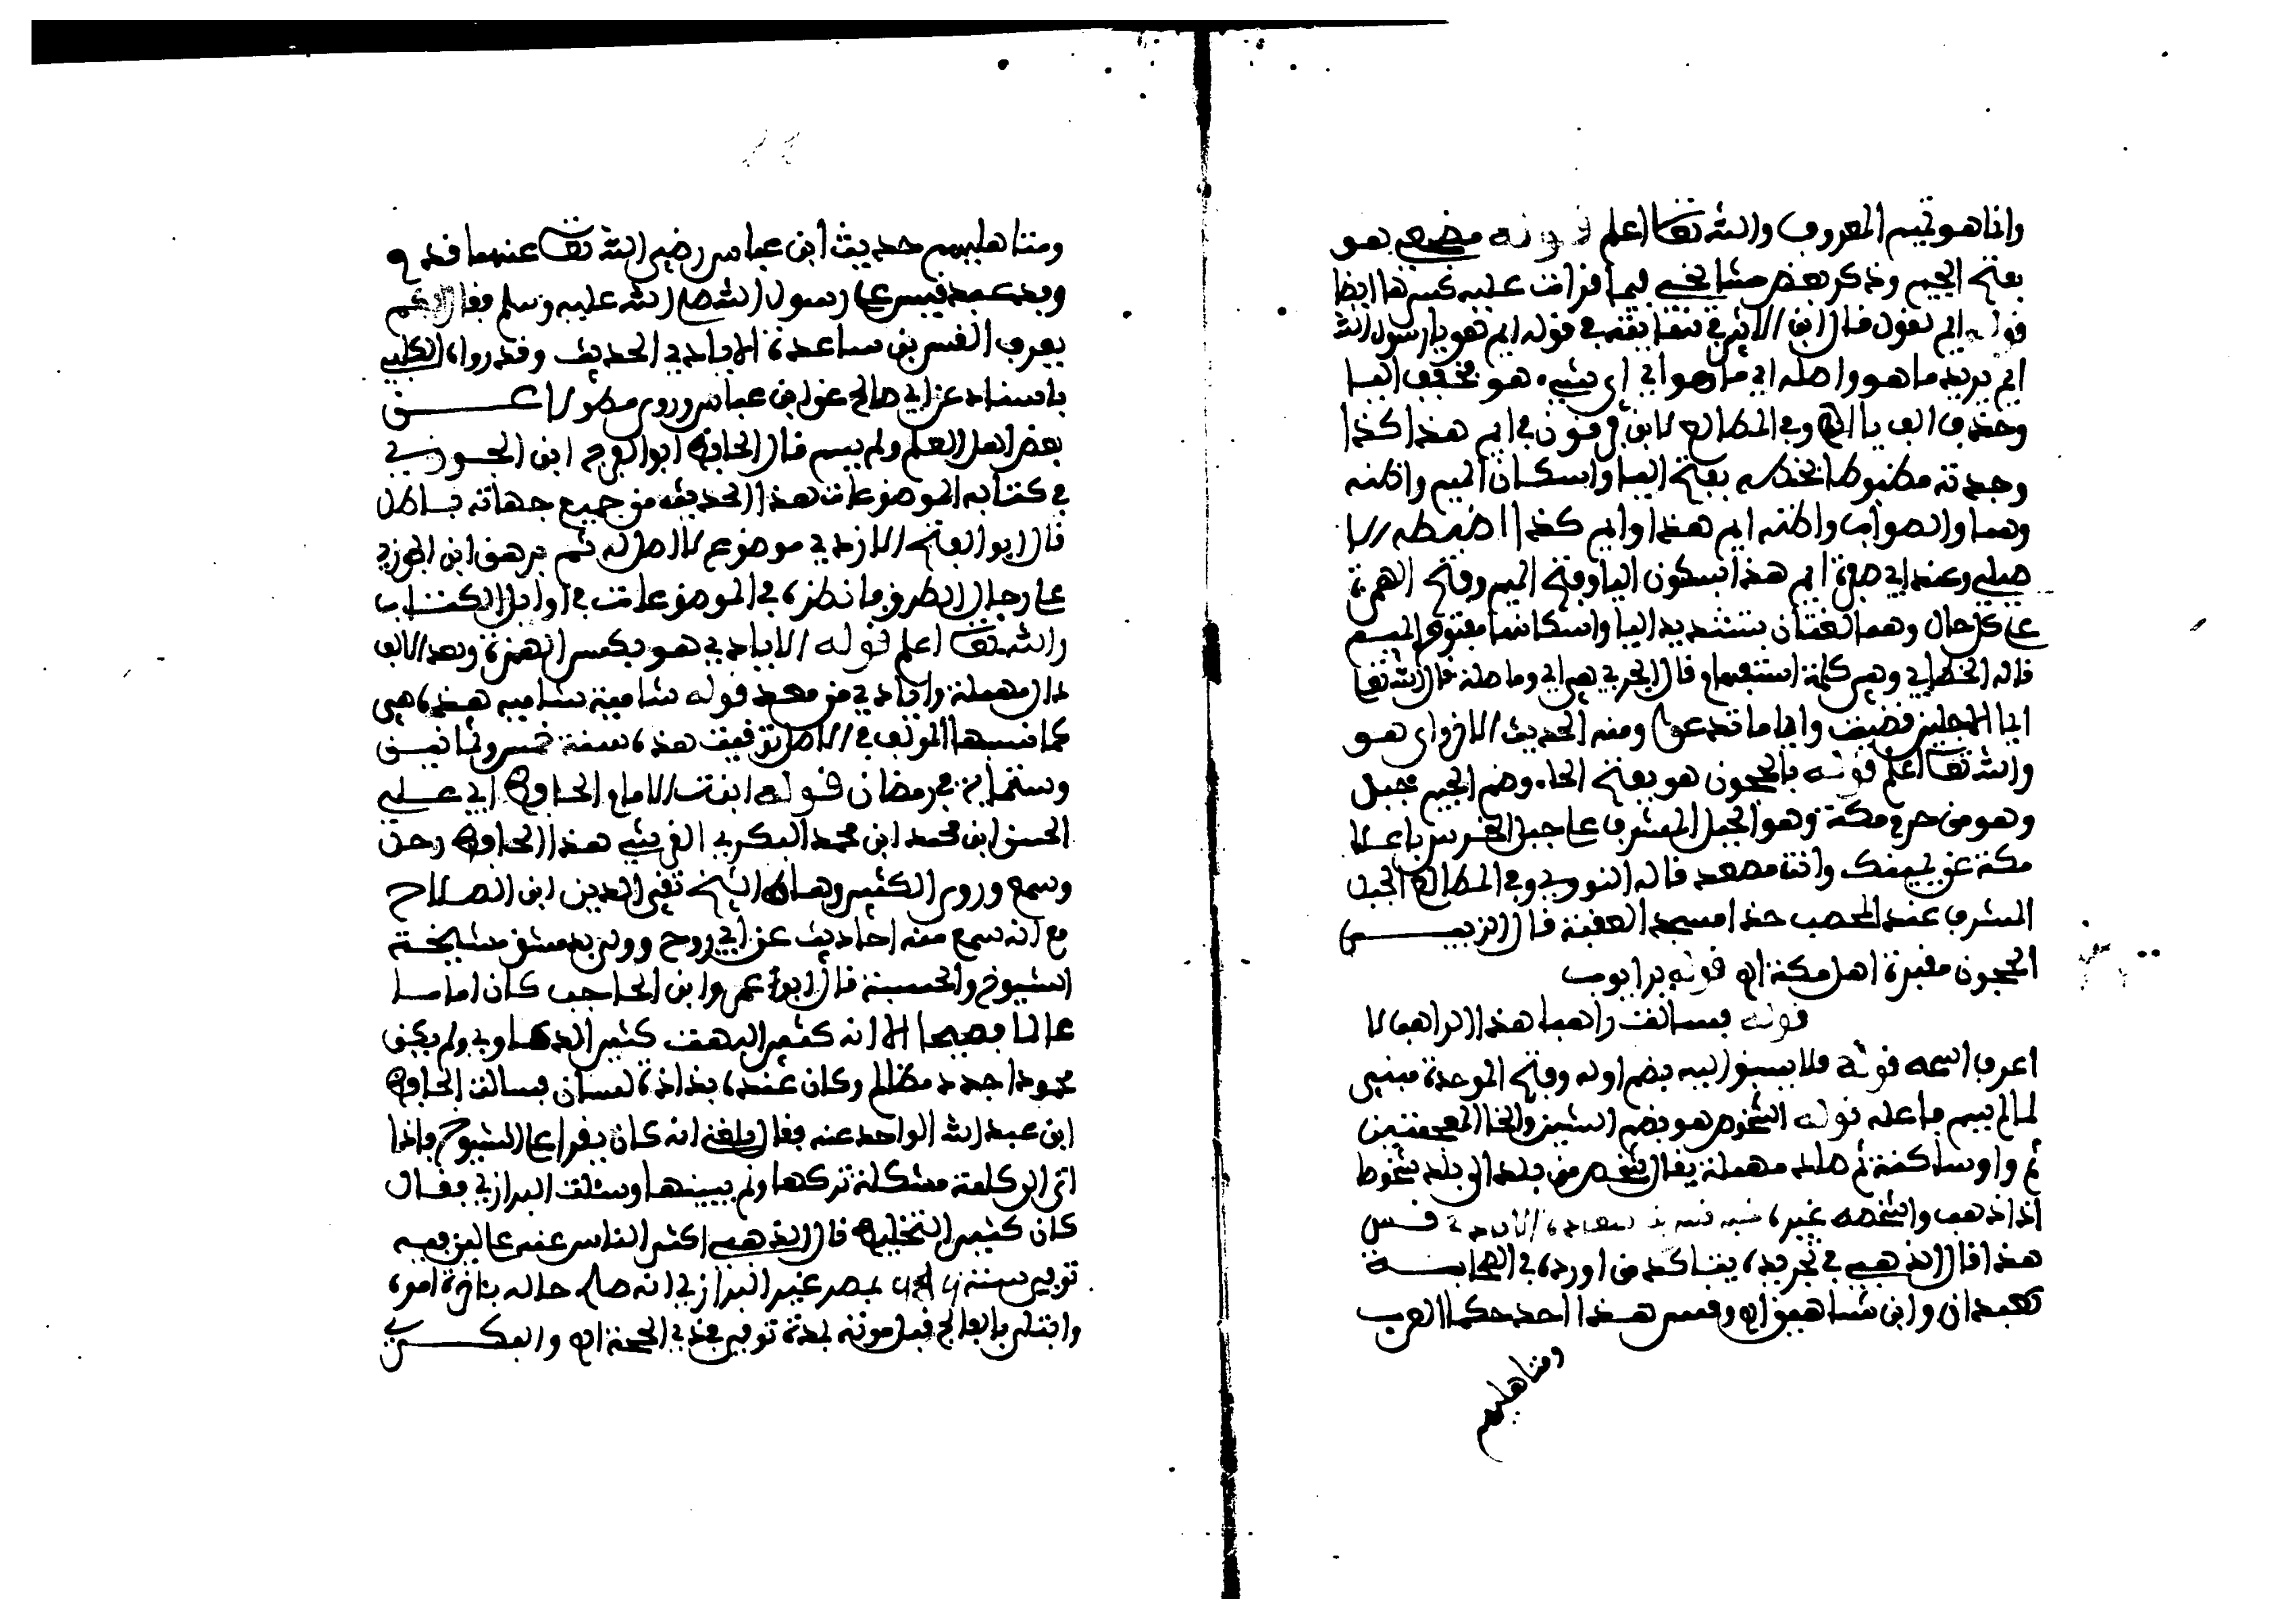 وانما هو تميم المعروف والله تعالى اعلم قوله مضجع هو
بفتح الجيم وذكر بعض مشايخي فيما قرات عليه كسرها ايضا
قوله ايم تقول قال ابن الاثير في قوله ايم هو يا رسول الله
ايم يريد ما هو واصله اي ما هو اي اي شيء هو مخفف اليا
وحذف الف ما اه وفي المطالع لابن قرقول في ايم هذا كذا
وجدته مضبوطا بخطه بفتح اليا واسكان الميم واظنه
وهما والصواب واظنه ايم هذا وايم كذا اضبطه الا
صيلي وعند ابي ذر ايم هذا بسكون اليا وفتح الميم وفتح الهمزة
على كل حال وهما لغتان بتشديد اليا واسكانها مفتوح الميم
قاله الخطابي وهي كلمة استفهام قال الحربي هي اي وما صلة قال الله تعالى
ايما الاجلين قضيت وايا ما تدعوا ومنه الحديث الاخر اي هو
والله تعالى اعلم قوله بالحجون هو بفتح الحاء وضم الجيم جبل
وهو من حرم مكة وهو الجبل المشرف على جبل الخرس باعلا
مكة عن يمينك وانت مصعد قاله النووي وفي المطالع الجبل
المشرف عند المحصب حذا مسجد العقبة قال الزبير
الحجون مقبرة اهل مكة اه قوله برا ثوب
قوله فسالت راهبا هذا الراهب لا
اعرف اسمه قوله فلا يسبق اليه بضم اوله وفتح الموحدة مبني
لما لم يسم فاعله قوله الشخوص هو بضم الشين والخا المعجمتين
ثم واو ساكنة ثم صاد مهملة يقال شخص من بلد الى بلد شخوصا
اذا ذهب واشخصه غيره قس
هذا قال الذهبي في تجريده من اورده في الصحابة
كعبدان وابن شاهين اه وقس هذا احد حكما العرب
ومشاهيرهم
ومشاهيرهم حديث ابن عباس رضي الله تعالى عنهما قدم
وفد عبد قيس على رسول الله صلى الله عليه وسلم فقال ايكم
يعرف القس بن ساعدة الايادي الحديث وقد رواه الكلبي
باسناد عن ابي صالح عن ابن عباس وروي مطولا عن
بعض اهل العلم ولم يسم قال الحافظ ابو الفرج ابن الجوزي
في كتابه الموضوعات هذا الحديث من جميع جهاته باطل
قال ابو الفتح الازدي موضوع لا اصل له ثم برهن ابن الجوزي
على رجال الطرق فانظره في الموضوعات في اوايل الكتاب
والله تعالى اعلم قوله الايادي هو بكسر الهمزة وبعد الالف
دال مهملة وايادي من معد قوله شامية هذه هي
كما نسبها المولف في الاصل توفيت هذه سنة خمس وثمانين
وستماية في رمضان قوله ابنت الامام الحافظ ابي علي
الحسن ابن محمد ابن محمد البكري القرشي هذا الحافظ رحل
وسمع وروى الكثير وهاه الشيخ تقي الدين ابن الصلاح
مع انه سمع منه احاديث عن ابي روح وولي بدمشق مشيخة
الشيوخ والحسبة قال ابو عمرو ابن الحاجب كان اماما
عالما فصيحا الا انه كثير البهت كثير الدعاوي ولم يكن
محمودا جدد مظالم وكان عنده بذاذة لسان فسالت الحافظ
ابن عبد الله الواحد عنه فقال بلغني انه كان يقرا على الشيوخ فاذا
اتى الى كلمة مشكلة تركها ولم يبينها وسئلت البرزالي فقال
كان كثير التخليط قال الذهبي اكثر الناس عنه على لين فيه
توفي سنة بمصر غير البرزالي انه صلح حاله باخرة امره
وابتلي بالفالج قبل موته بمدة توفي في ذي الحجة اه والبكري